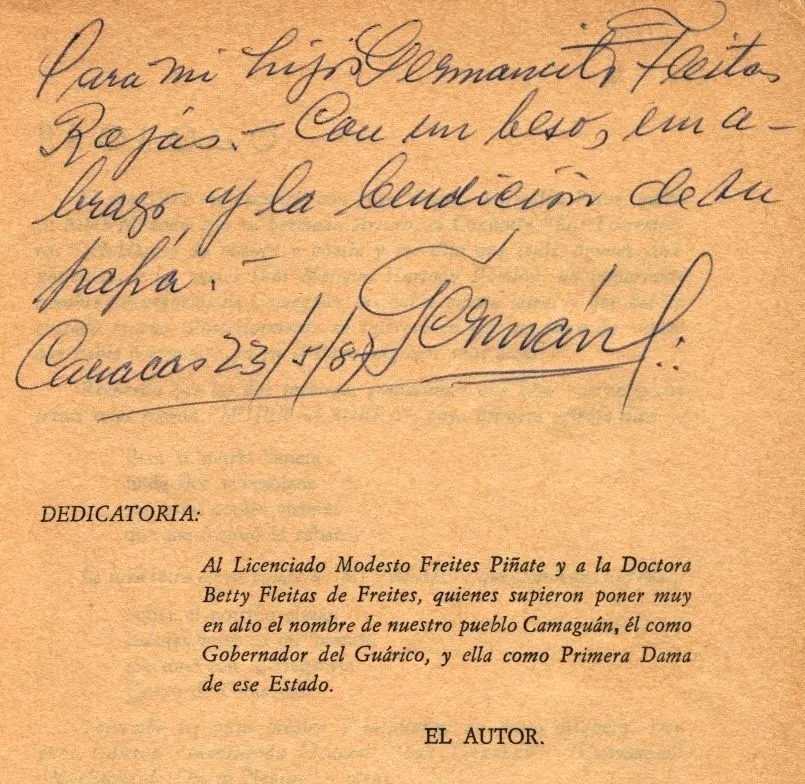 Para mi hijo Germancito Fleitas
Rojas.- Con un beso, un a-
brazo, y la bendición de su
papá.-
Germán F.:
Caracas 23/5/87
DEDICATORIA:
Al Licenciado Modesto Freites Piñate y a la Doctora
Betty Fleitas de Freites, quienes supieron poner muy
en alto el nombre de nuestro pueblo Camaguán, él como
Gobernador del Guárico, y ella como Primera Dama
de ese Estado.
EL AUTOR.